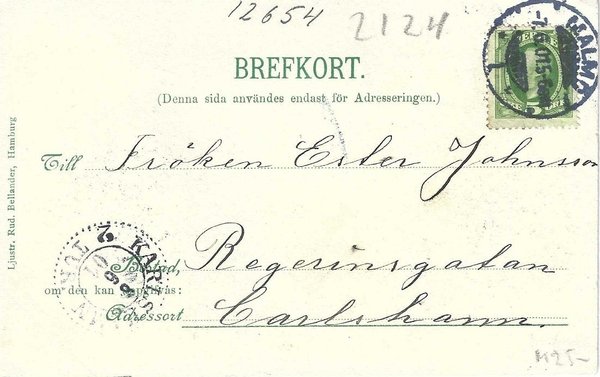 12654
2124
BREFKORT.
(Denna sida användes endast för Adresseringen.)
Till Fröken Ester Johnsson
Bostad, Regerinsgatan
om den kan uppgifvas:
Adressort Carlshamn.
Ljustr. Rud. Bellander, Hamburg
MALM
1
2 KAR
5
M25-